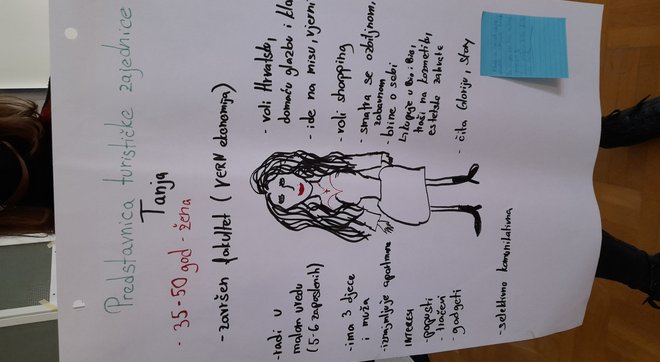 Predstavnica turističke zajednice
Tanja
- 35-50 god - žena
- završen fakultet (VERN ekonomija)
- radi u
malom uredu
(5-6 zaposlenih)
- ima 3 djece
i muža
- iznajmljuje apartmane
INTERESI
- popusti
- tračevi
- gadgeti
- selektivno komunikativna
- voli Hrvatsku,
domaću glazbu i
- ide na misu,
- voli shopping
- smatra se ozbiljnom,
zabavnom
- brine o sebi
kupuje u Bio i Bio,
troši na kozmetiku,
estetske zahvate
- čita Gloriju, Story